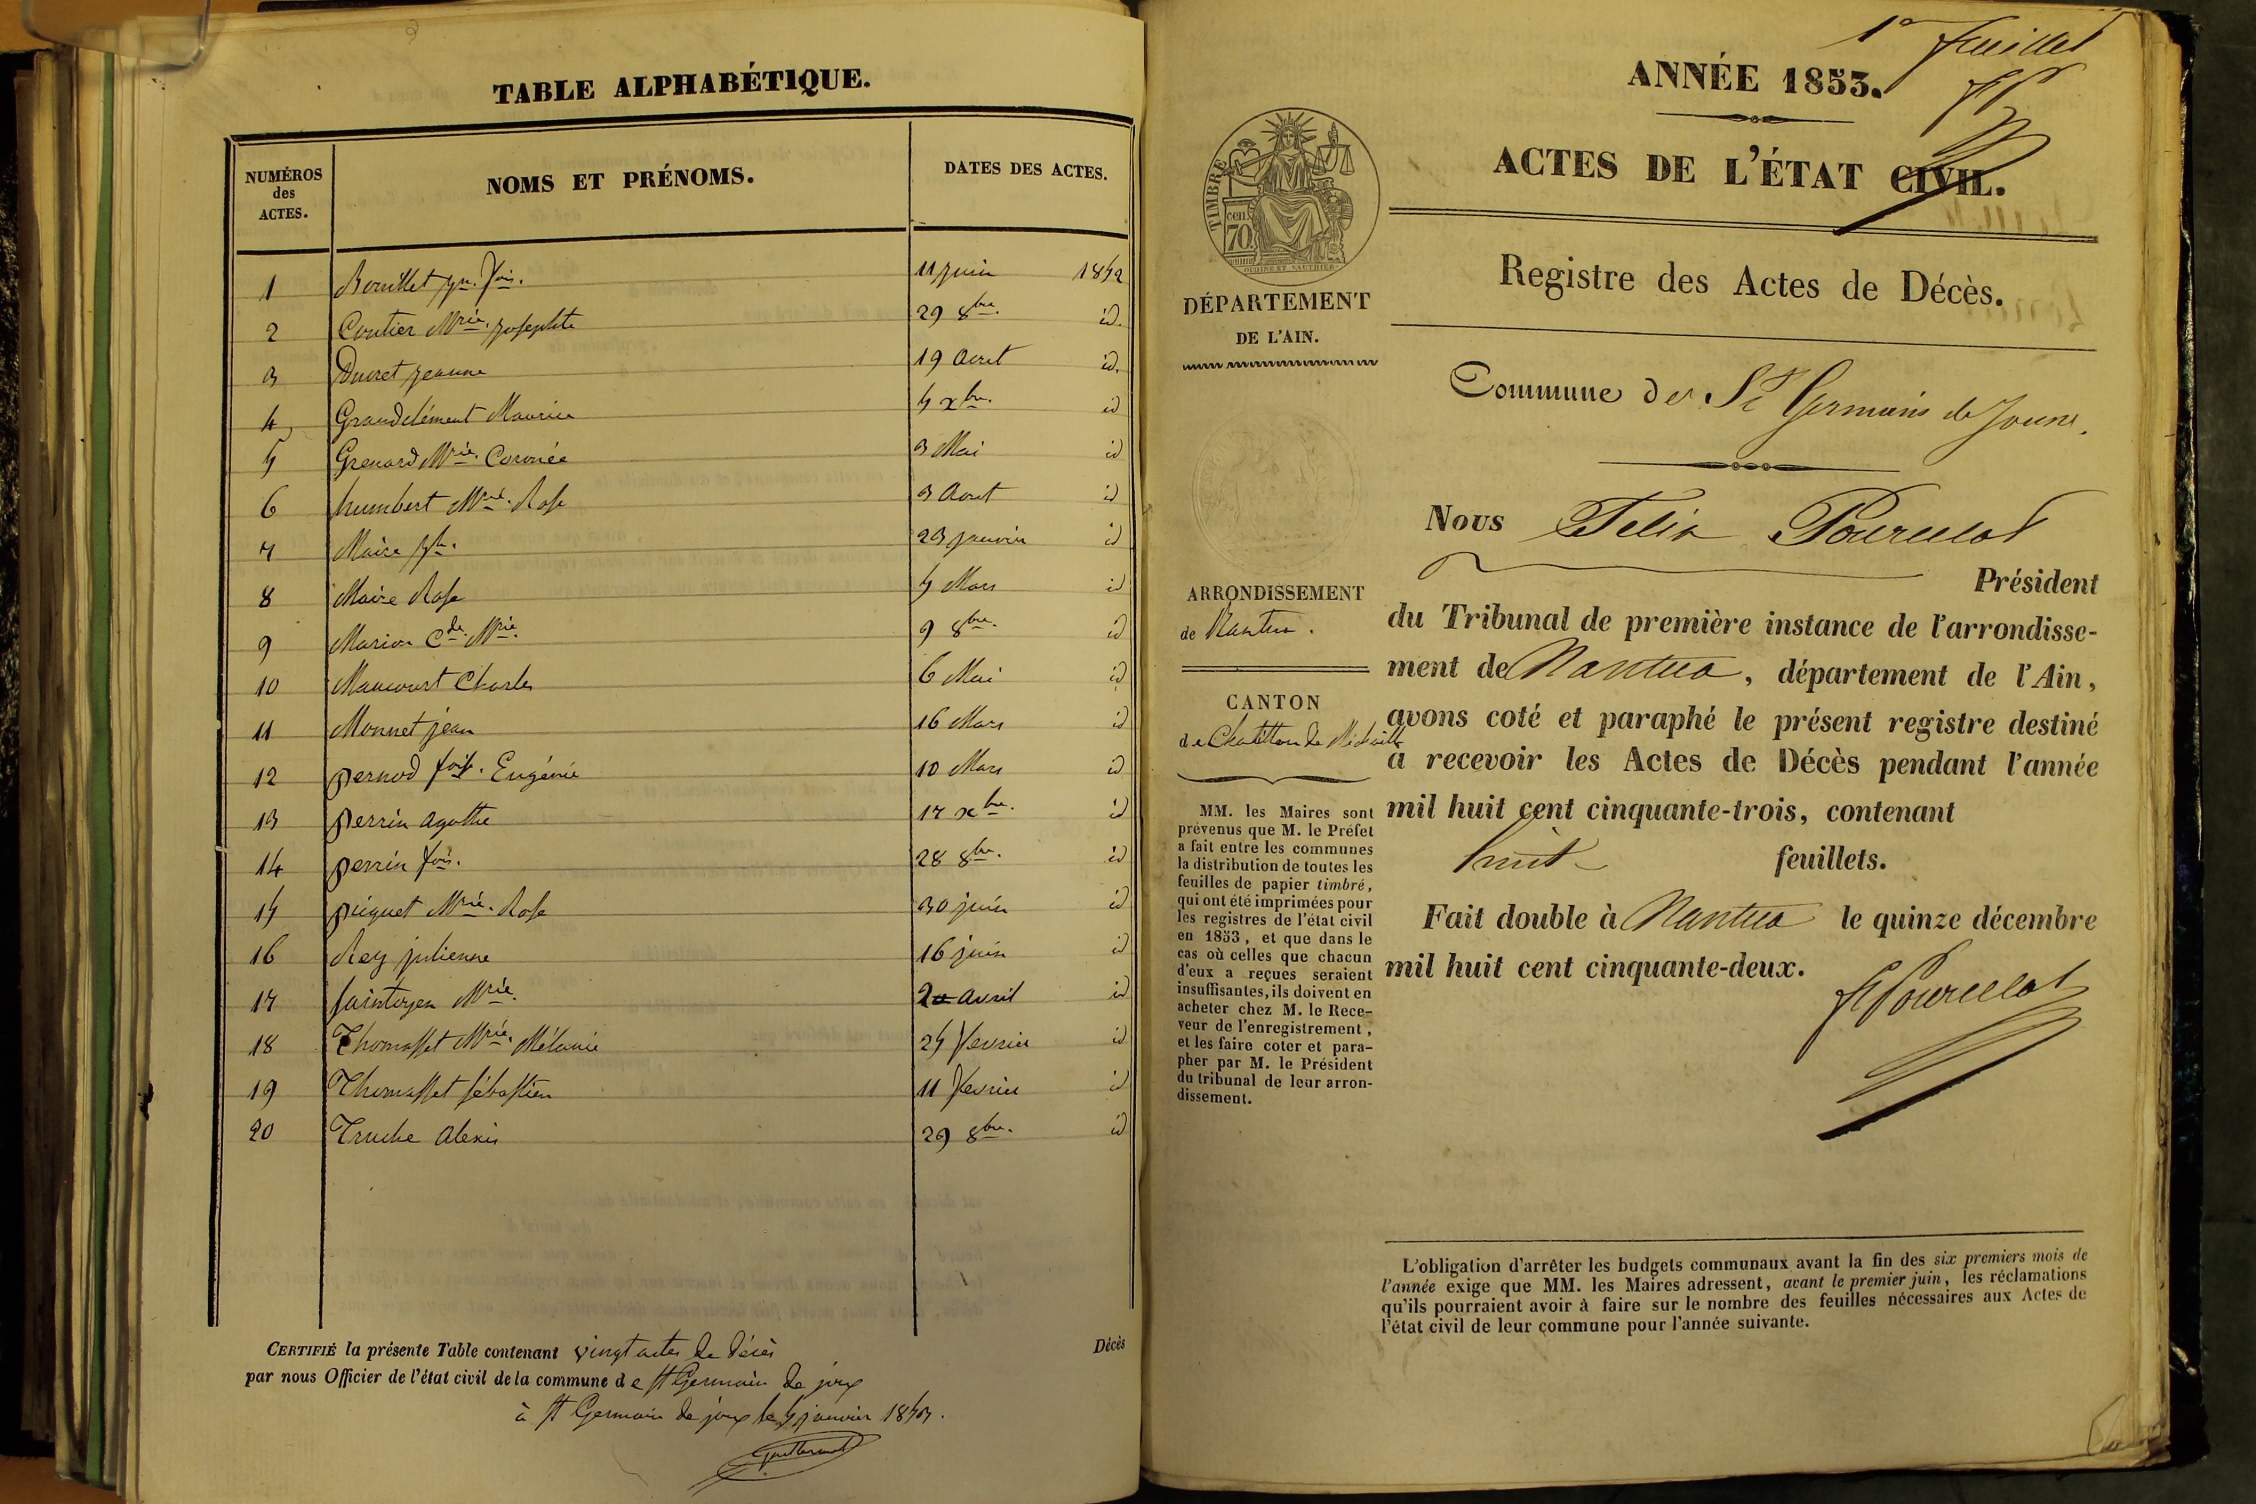 TABLE ALPHABÉTIQUE.
NUMÉROS des ACTES. NOMS ET PRÉNOMS. DATES DES ACTES.
1 Bouillet jn. fois. 11 juin 1852
2 Coutier Mrie. josephte 29 8bre. id.
3 Ducret jeanne 19 Aout id.
4 Grandclément Maurice 5 xbre. id
5 Grenard Mrie. 3 Mai id
6 humbert Mrie. Rose 3 Aout id
7 Maire jh. 23 janvier id
8 Maire Rose 5 Mars id
9 Marion Cde. Mrie. 9 8bre. id
10 Mancourt Charles 6 Mai id
11 Monnet jean 16 Mars id
12 pernod foise. Eugénie 10 Mars id
13 perrin agathe 17 xbre. id
14 perrin fois. 28 8bre. id
15 piquet Mrie. Rose 30 juin id
16 Rey julienne 16 juin id
17 saintoyen Mrie. avril id
18 Thomasset Mrie. Mélanie 25 fevrier id
19 Thomasset sébastien 11 fevrier id
20 Truche alexis 29 8bre. id
CERTIFIÉ la présente Table contenant vingt actes de décès Décès
par nous Officier de l'état civil de la commune de st Germain de joux
à st Germain de joux le 5 janvier 1853.
1er feuillet
ANNÉE 1853.
ACTES DE L'ÉTAT CIVIL.
TIMBRE
70 cen.
OUDINE ET SAUTHIER
DÉPARTEMENT
DE L'AIN.
Registre des Actes de Décès.
Commune de St Germain de Joux.
Nous Felix Pourcelot
Président
ARRONDISSEMENT
de Nantua.
du Tribunal de première instance de l'arrondisse-
ment de Nantua, département de l'Ain,
CANTON
de Chatillon de Michaille
avons coté et paraphé le présent registre destiné
à recevoir les Actes de Décès pendant l'année
mil huit cent cinquante-trois, contenant
huit feuillets.
Fait double à Nantua le quinze décembre
mil huit cent cinquante-deux.
F Pourcelot
MM. les Maires sont
prévenus que M. le Préfet
a fait entre les communes
la distribution de toutes les
feuilles de papier timbré,
qui ont été imprimées pour
les registres de l'état civil
en 1853, et que dans le
cas où celles que chacun
d'eux a reçues seraient
insuffisantes, ils doivent en
acheter chez M. le Rece-
veur de l'enregistrement,
et les faire coter et para-
pher par M. le Président
du tribunal de leur arron-
dissement.
L'obligation d'arrêter les budgets communaux avant la fin des six premiers mois de
l'année exige que MM. les Maires adressent, avant le premier juin, les réclamations
qu'ils pourraient avoir à faire sur le nombre des feuilles nécessaires aux Actes de
l'état civil de leur commune pour l'année suivante.